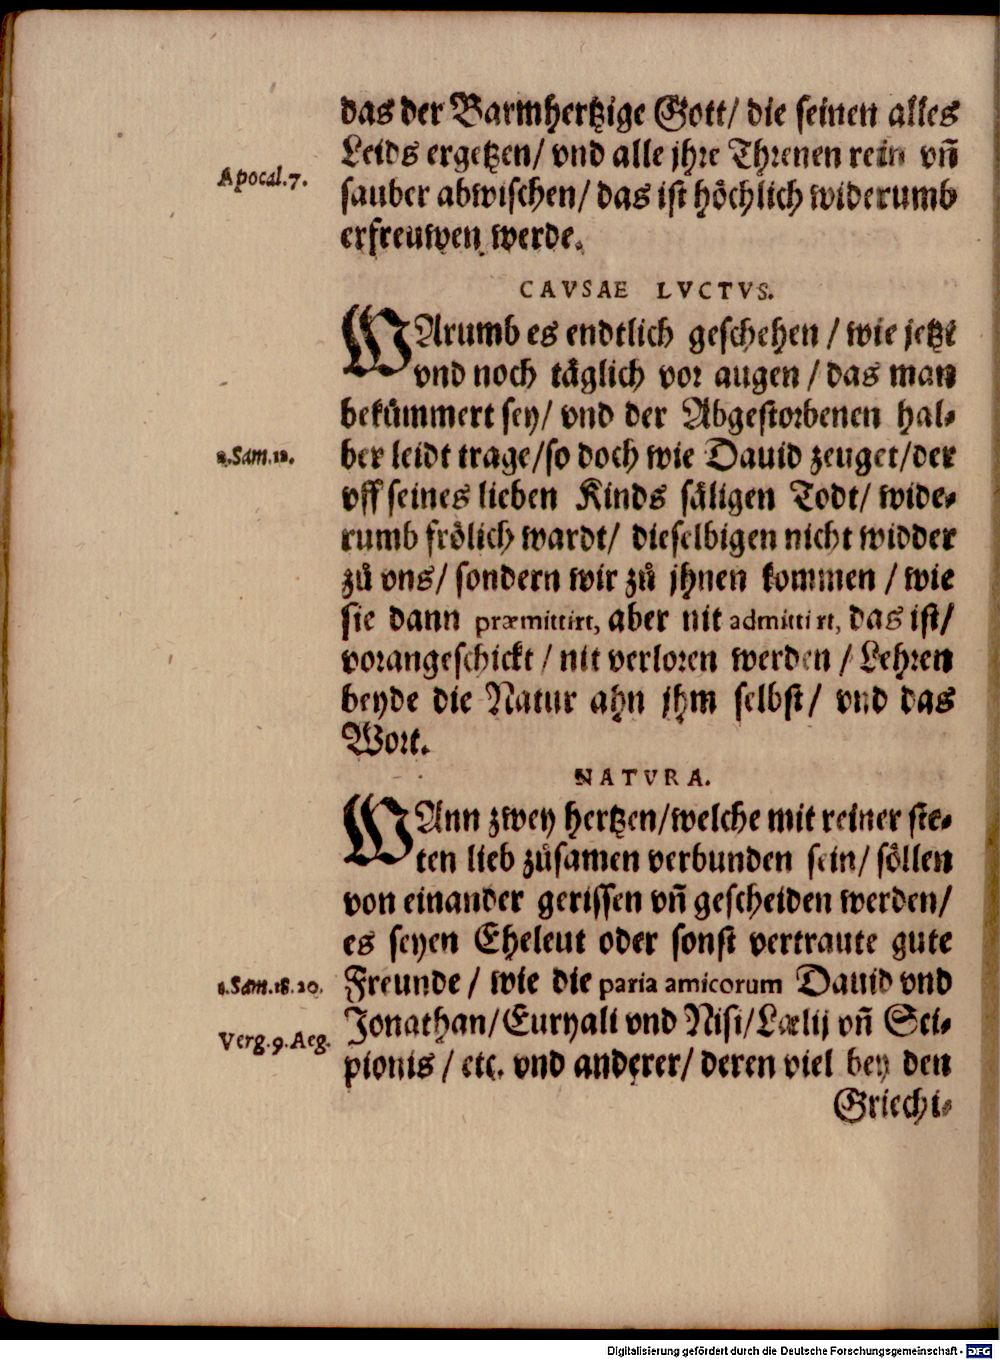 das der Barmhertzige Gott/ die seinen alles
Leids ergetzen/ vnd alle jhre Threnen rein vñ
Apocal.7.
sauber abwischen/ das ist hoͤchlich widerumb
erfreuwen werde.
CAVSAE LVCTVS.
WArumb es endtlich geschehen / wie jetzt
vnd noch taͤglich vor augen / das man
bekuͤmmert sey/ vnd der Abgestorbenen hal-
2.Sam.12.
ber leidt trage/so doch wie Dauid zeuget/der
vff seines lieben Kinds saͤligen Todt/ wide-
rumb froͤlich wardt/ dieselbigen nicht widder
zuͦ vns/ sondern wir zuͦ jhnen kommen / wie
sie dann præmittirt, aber nit admittirt, das ist/
vorangeschickt / nit verloren werden / Lehren
beyde die Natur ahn jhm selbst/ vnd das
Wort.
NATVRA.
WAnn zwey hertzen/welche mit reiner ste-
ten lieb zuͦsamen verbunden sein/ soͤllen
von einander gerissen vñ gescheiden werden/
es seyen Eheleut oder sonst vertraute gute
1.Sam.18.20.
Freunde / wie die paria amicorum Dauid vnd
Verg.9.Aeg.
Jonathan/Euryali vnd Nisi/Lælij vñ Sci-
pionis / etc. vnd anderer/ deren viel bey den
Griechi-
Digitalisierung gefördert durch die Deutsche Forschungsgemeinschaft - DFG